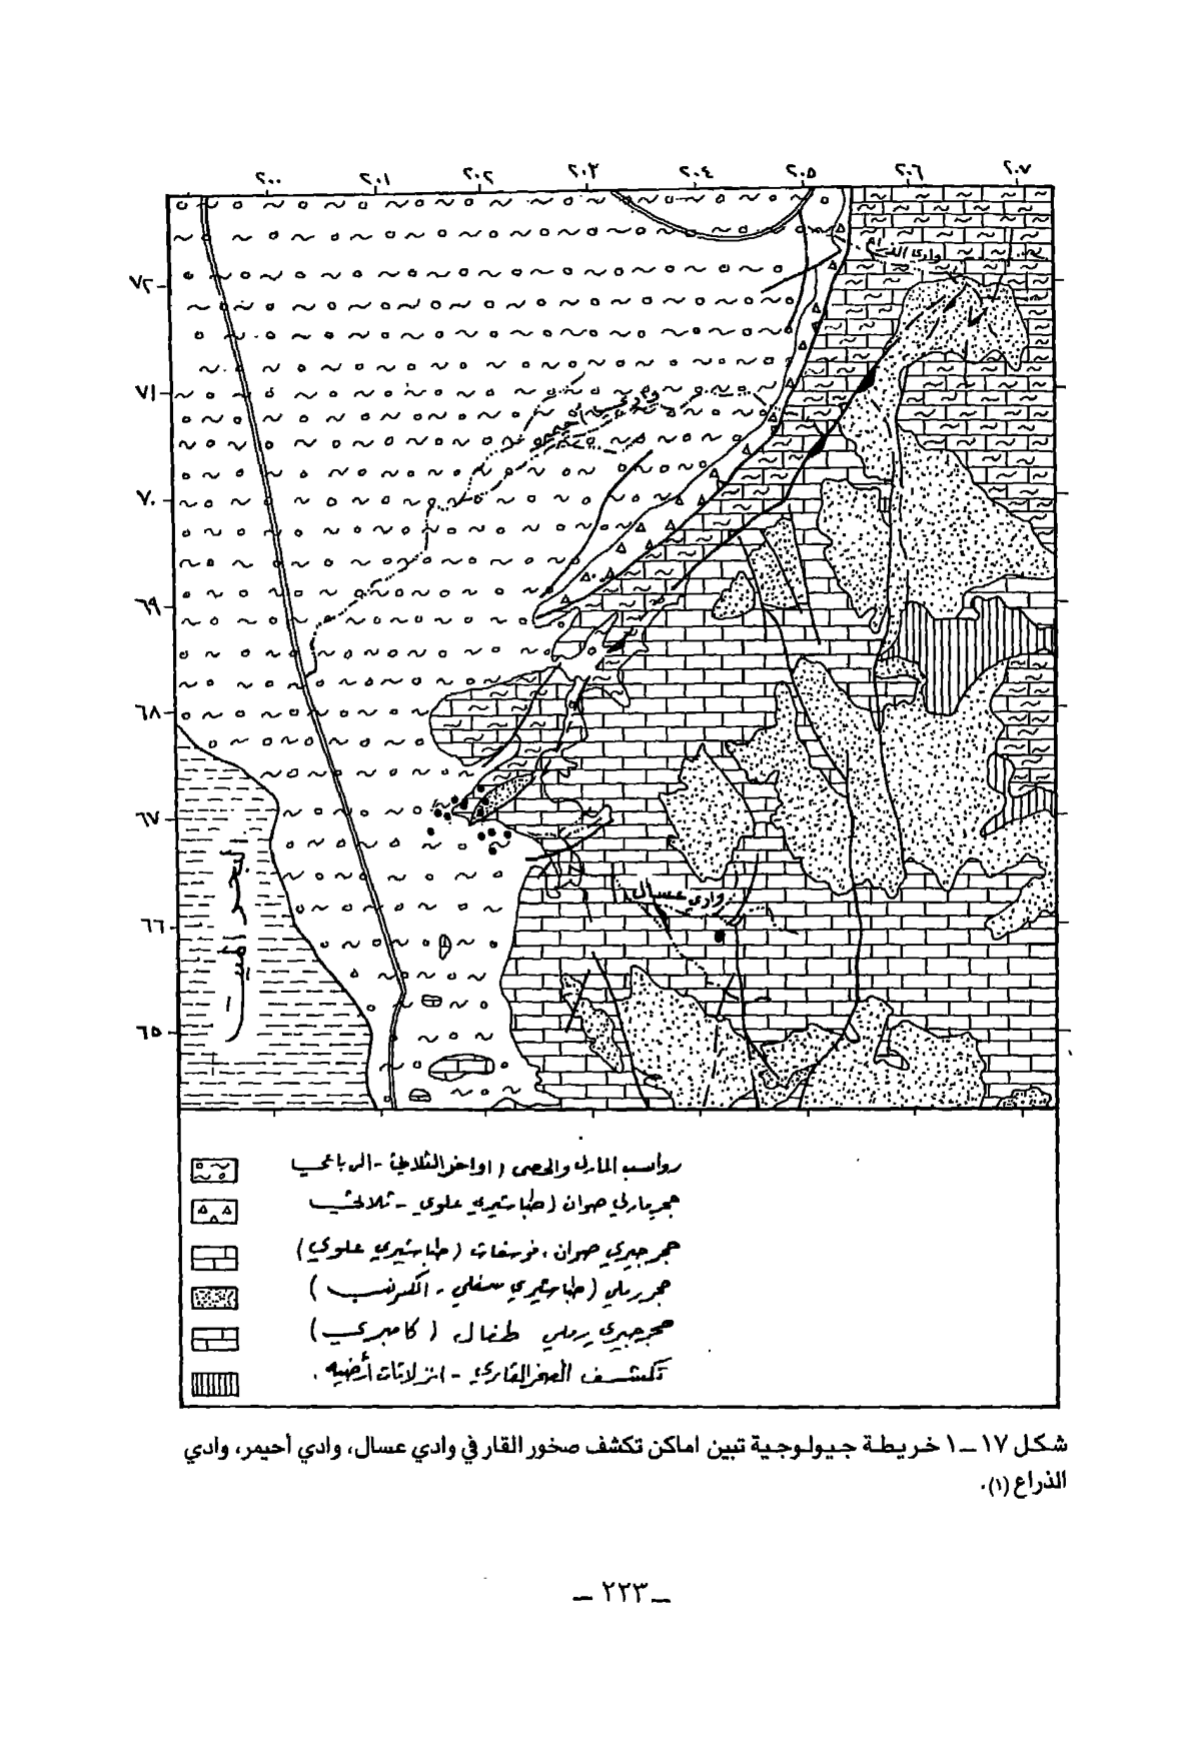 ٢٠٠ ٢٠١ ٢٠٢ ٢٠٣ ٢٠٤ ٢٠٥ ٢٠٦ ٢٠٧
وادي الذراع
٧٢
٧١
وادي احيمر
٧٠
٦٩
٦٨
٦٧
البحر
وادي عسال
٦٦
٦٥
رواسب المارل والحصى (اواخر الثلاثي - الرباعي
حجر مارلي صوان (طباشيري علوي - ثلاثي
حجر جيري صوان، فوسفات (طباشيري علوي)
حجر رملي (طباشيري سفلي - الكرنب)
حجر جيري رملي طفال (كامبري)
تكشف الصخر القاري - انزلاقات أرضيه.
شكل ١٧ – ١ خريطة جيولوجية تبين اماكن تكشف صخور القار في وادي عسال، وادي أحيمر، وادي
الذراع (١).
– ٢٢٣ –